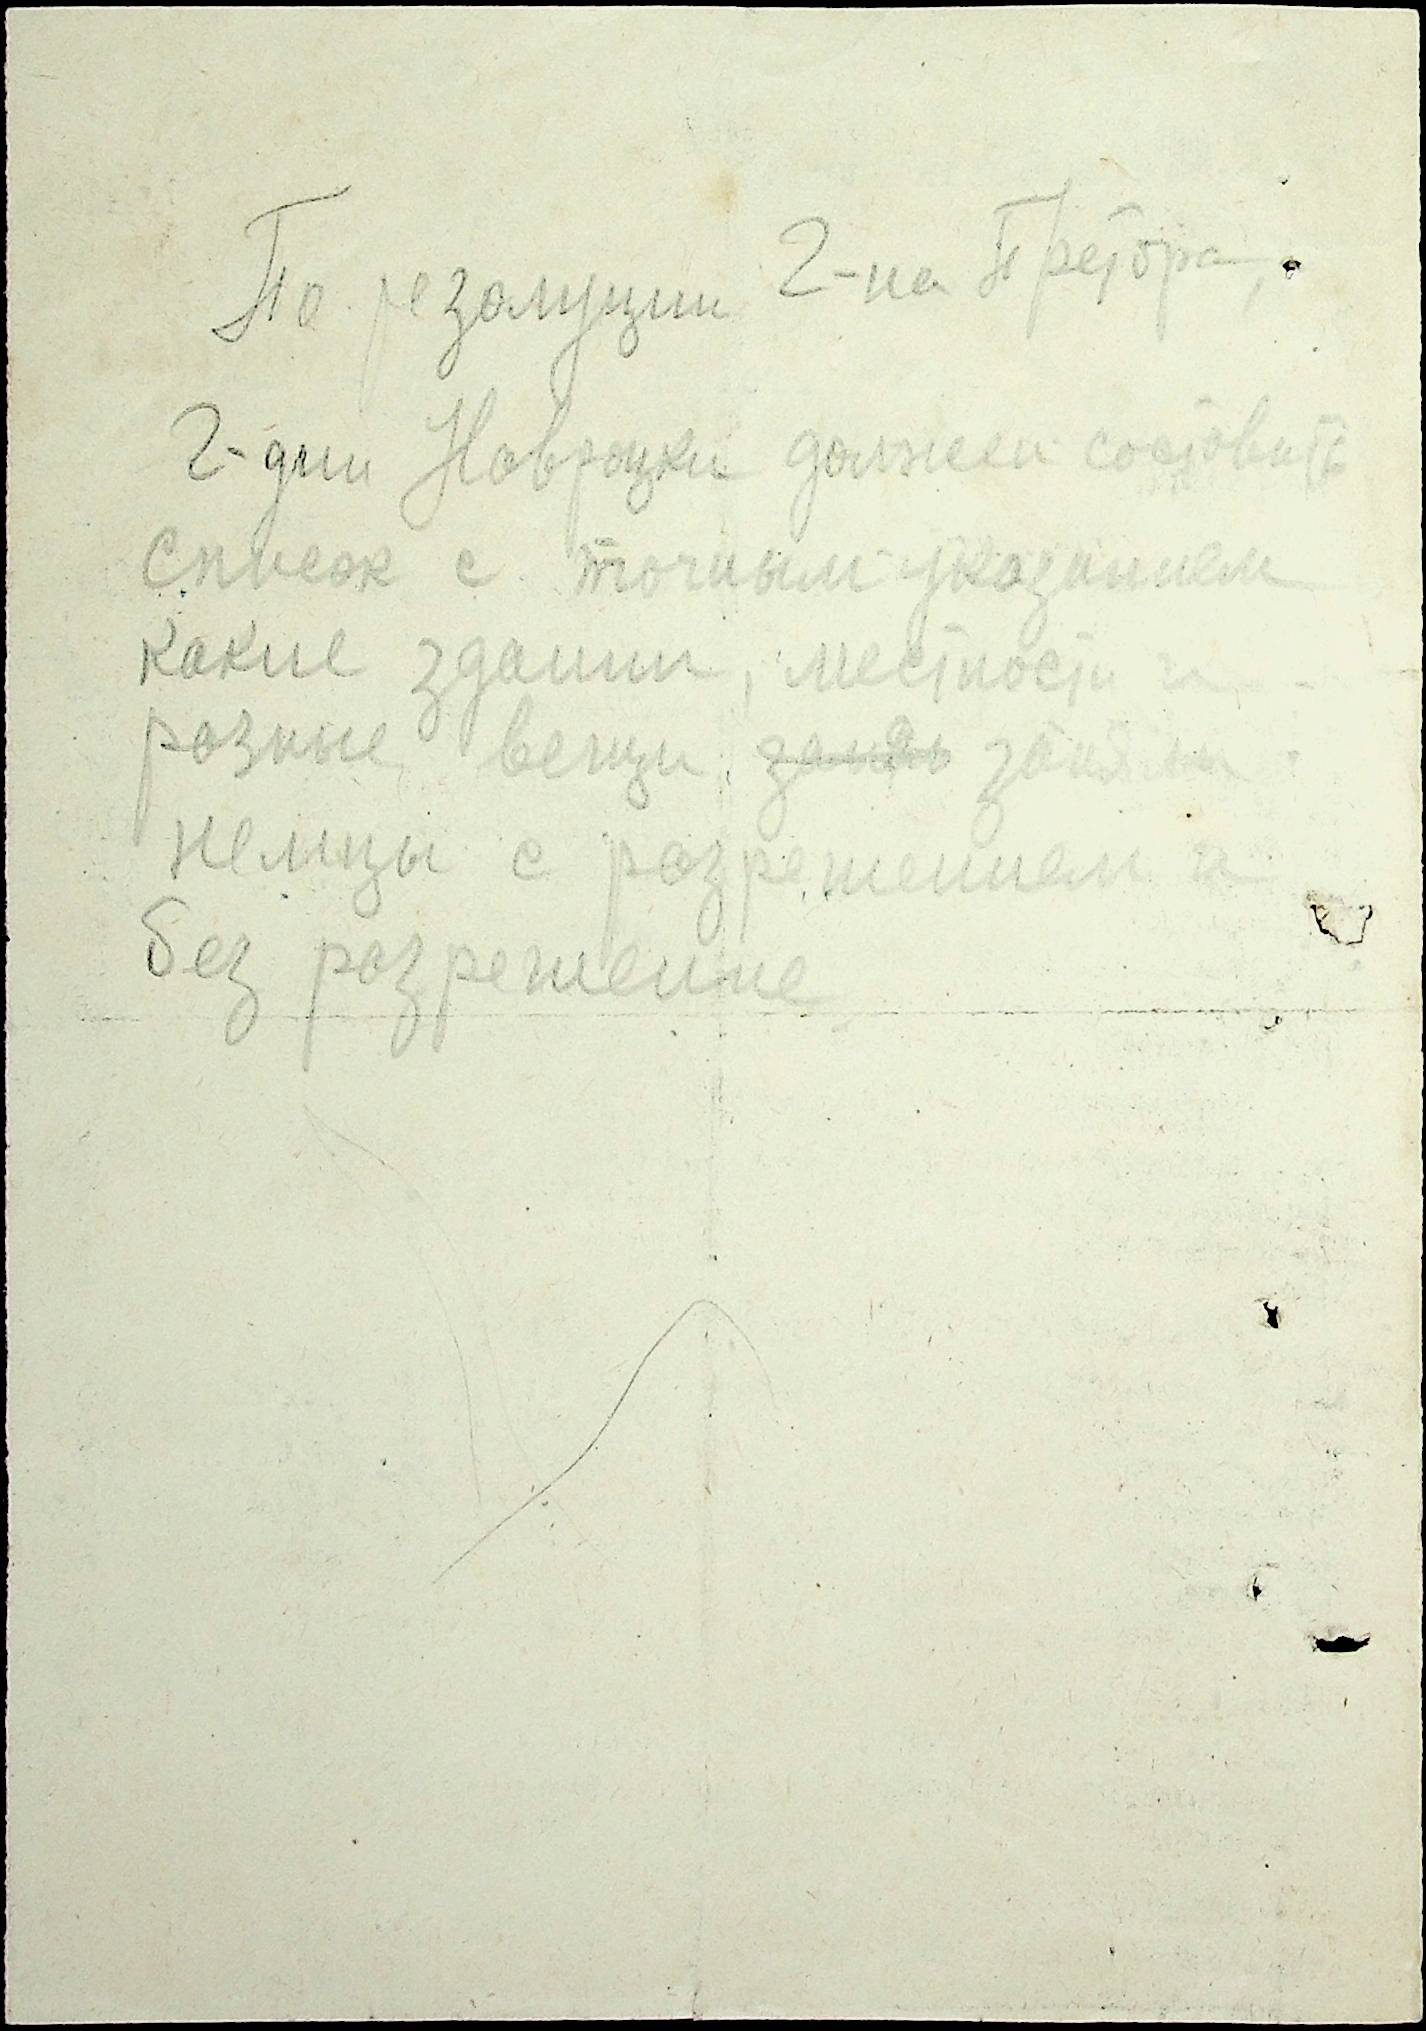 По резолуции Г-на Претора,
Г-дин Навроцки должен составить
список с точным указанием
какие здании, местности и
разные вещи заняли
немцы с разрешением и
без разрешение